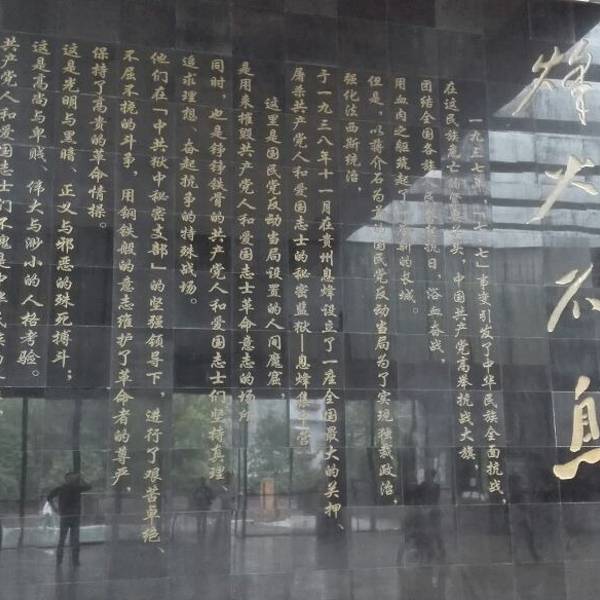 烽火不息
一九三七年，“七七”事变引发了中华民族全面抗战，
在这民族危亡的紧要关头，中国共产党高举抗战大旗，
团结全国各族人民奋起抗日，浴血奋战，
用血肉之躯筑起了新的长城。
但是，以蒋介石为首的国民党反动当局为了实现独裁政治，
强化法西斯统治，
于一九三八年十一月在贵州息烽设立了一座全国最大的关押、
屠杀共产党人和爱国志士的秘密监狱——息烽集中营
这里是国民党反动当局设置的人间魔窟，
是用来摧毁共产党人和爱国志士革命意志的场所
同时，也是铮铮铁骨的共产党人和爱国志士们坚持真理、
追求理想、奋起抗争的特殊战场。
他们在「中共狱中秘密支部」的坚强领导下，进行了艰苦卓绝、
不屈不挠的斗争，用钢铁般的意志维护了革命者的尊严，
保持了高贵的革命情操。
这是光明与黑暗、正义与邪恶的殊死搏斗；
这是高尚与卑贱、伟大与渺小的人格考验。
共产党人和爱国志士们不愧是中华民族的